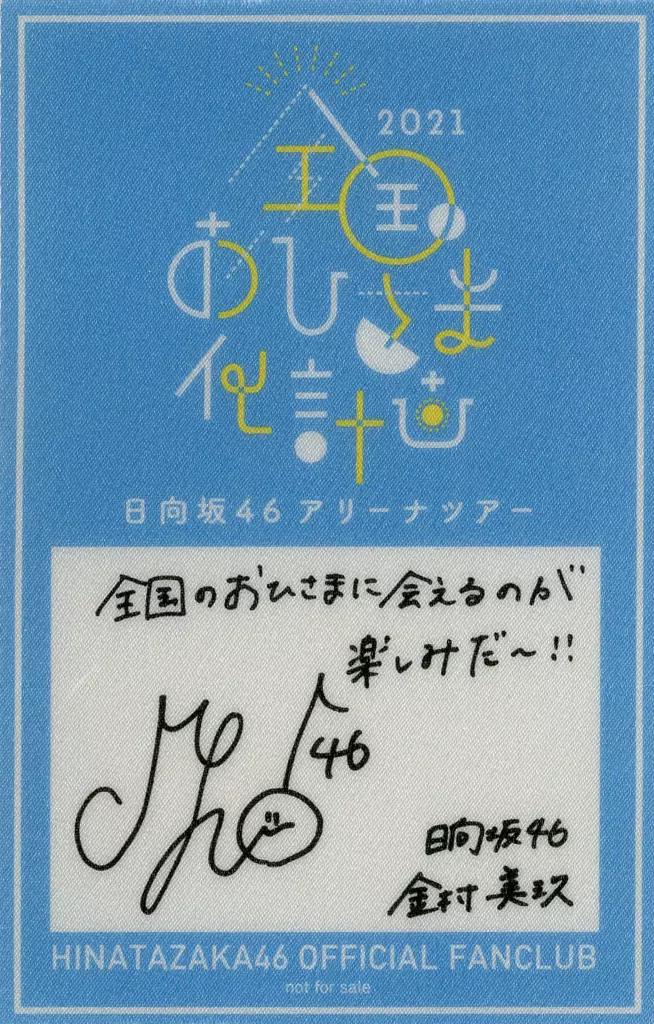 2021
全国の
おひさま
化計画
日向坂46 アリーナツアー
全国のおひさまに会えるのが
楽しみだ〜!!
46
日向坂46
金村美玖
HINATAZAKA46 OFFICIAL FANCLUB
not for sale